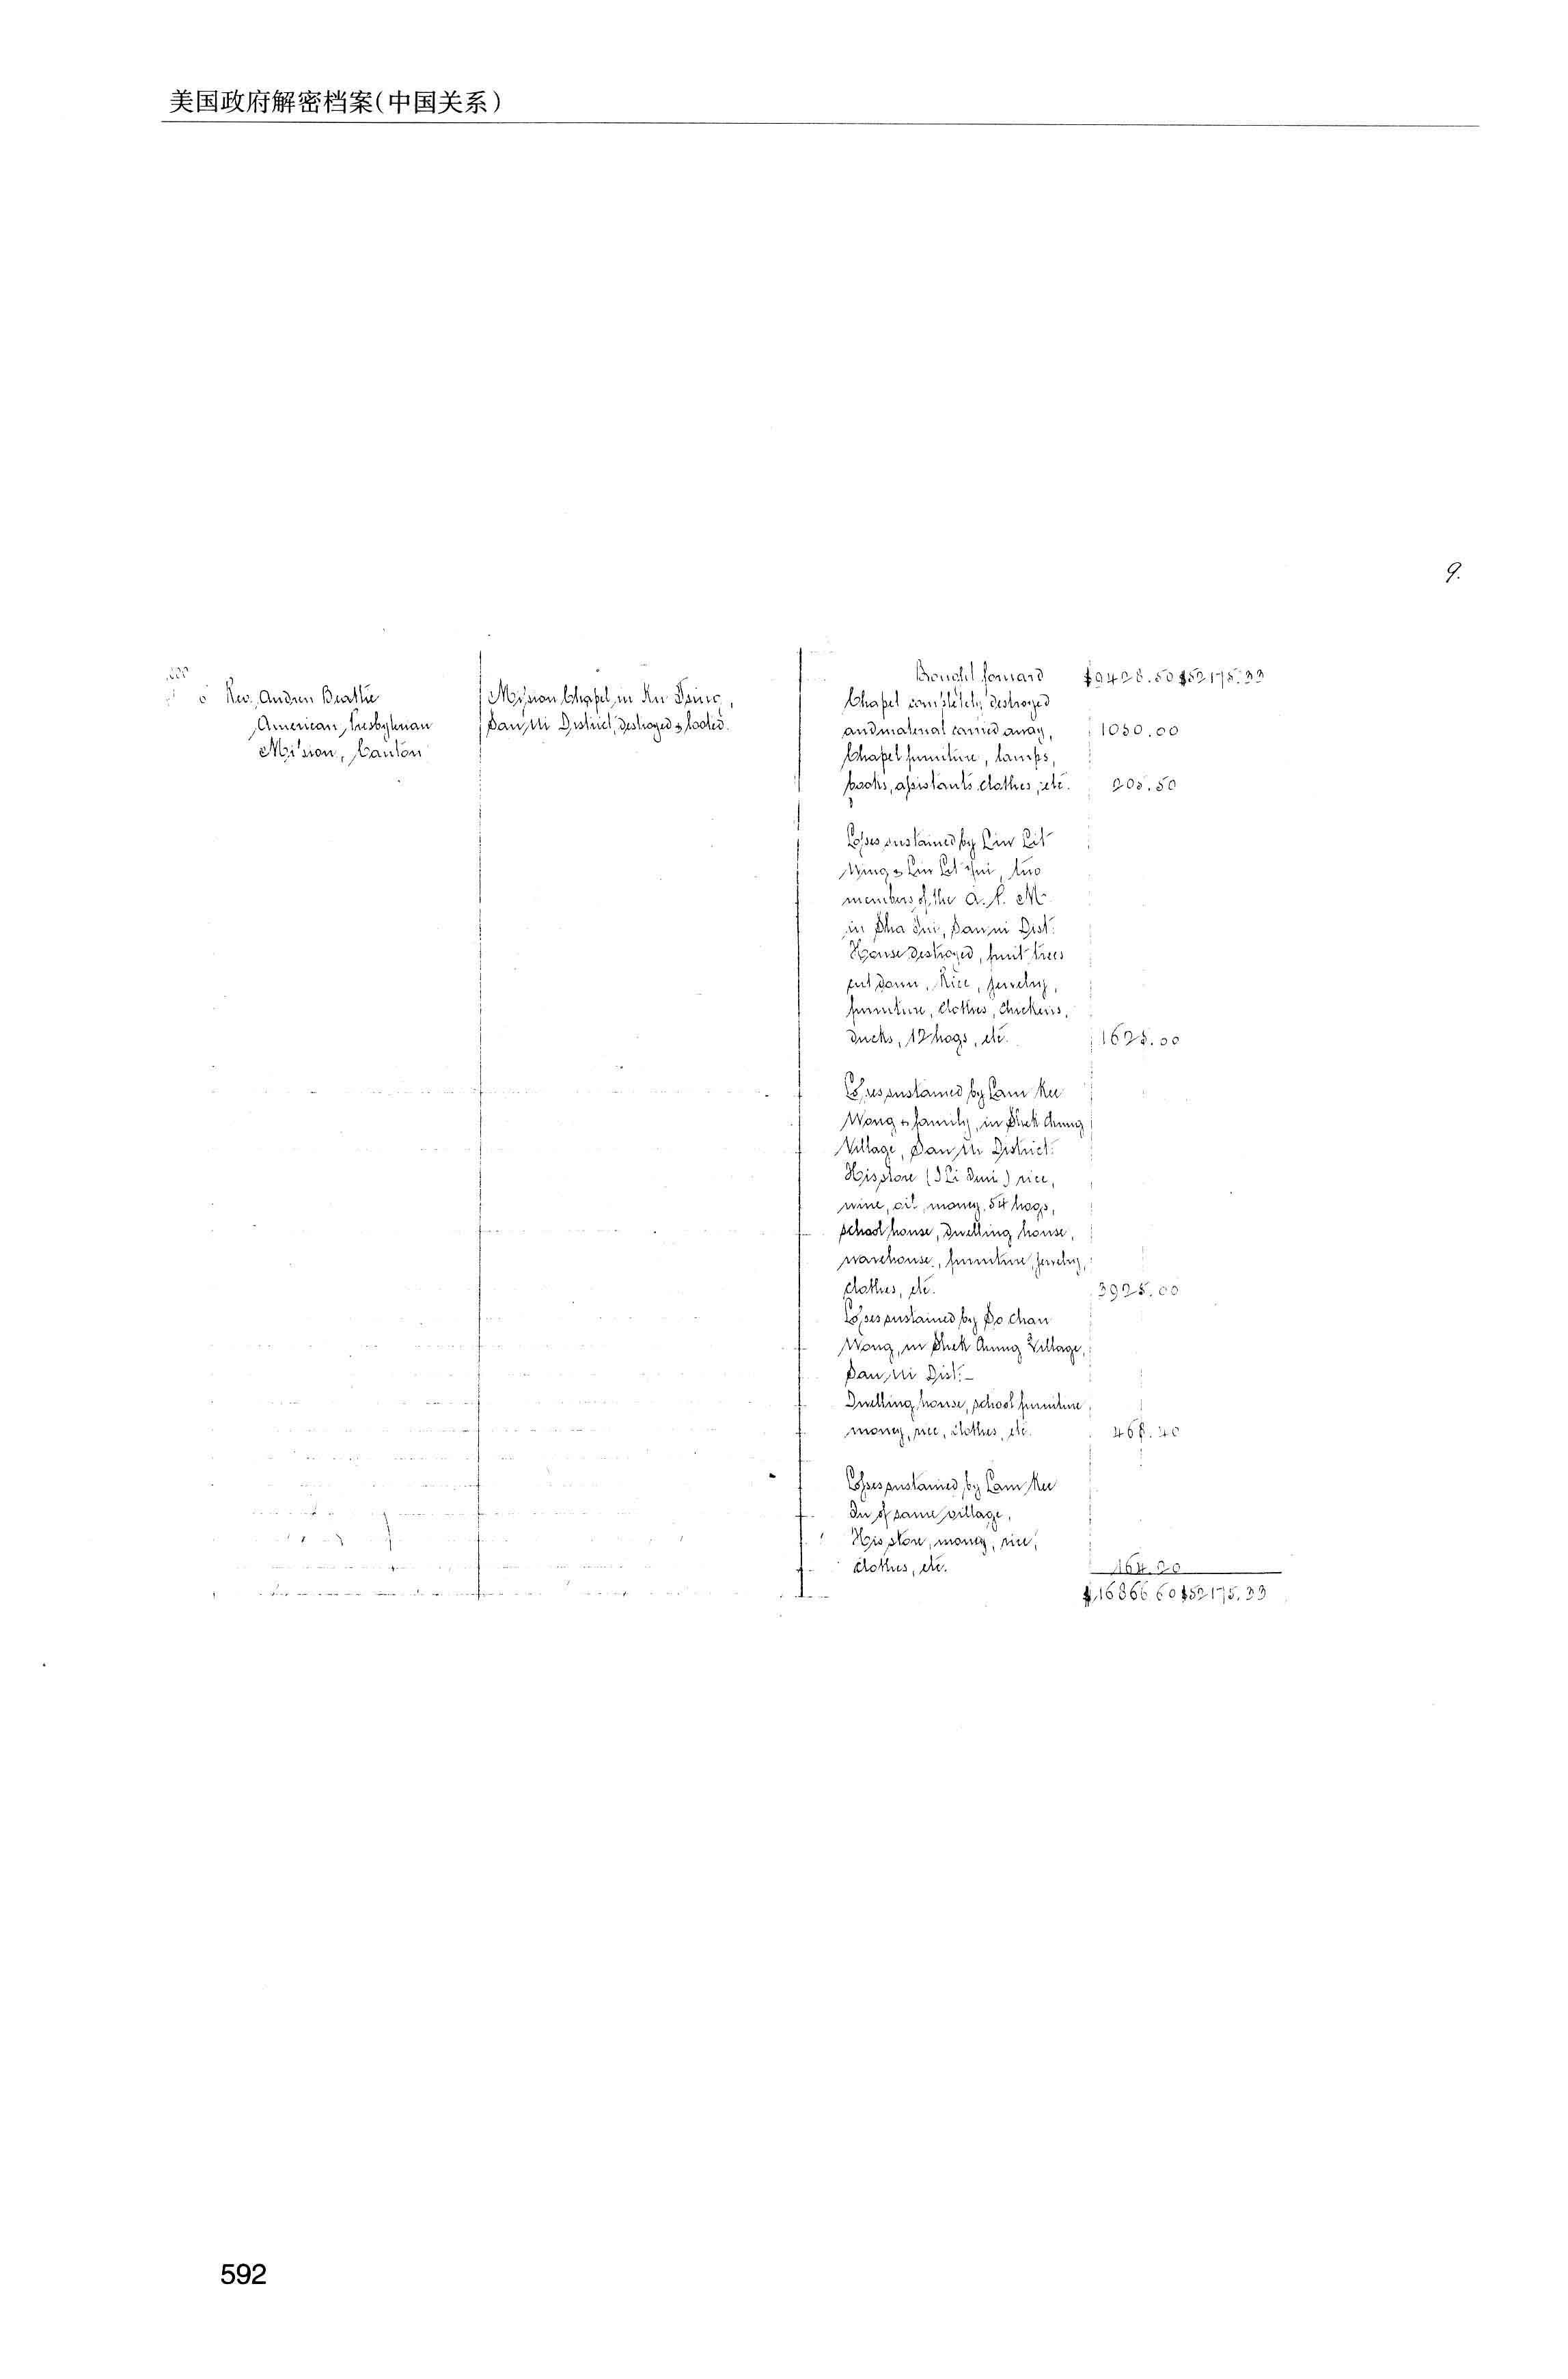 美国政府解密档案(中国关系)
9.
Brought forward $9428.50 $52175.33
Rev. Andrew Beattie
American Presbyterian
Mission, Canton
Mission Chapel in Ku Tsing,
San Ui District, destroyed & looted.
Chapel completely destroyed
and material carried away, 1050.00
Chapel furniture, lamps,
books, assistants clothes, etc. 205.50
Losses sustained by Liu Lit
Wing & Liu Lit Yui, two
members of the A. P. M.
in Sha Tui, San ui Dist:
House destroyed, fruit trees
cut down, Rice, jewelry,
furniture, clothes, chickens,
ducks, 12 hogs, etc. 1625.00
Losses sustained by Lam Kee
Wong & family, in Shek Chung
Village, San Ui District:
His store (I Li Tui) rice,
wine, oil, money, 54 hogs,
school house, dwelling house,
warehouse, furniture, jewelry,
clothes, etc. 3925.00
Losses sustained by So Chan
Wong, in Shek Chung Village,
San Ui Dist:-
Dwelling house, school furniture
money, rice, clothes, etc. 468.40
Losses sustained by Lam Kee
Du of same village,
His store, money, rice,
clothes, etc. 164.20
$16866.60 $52175.33
592